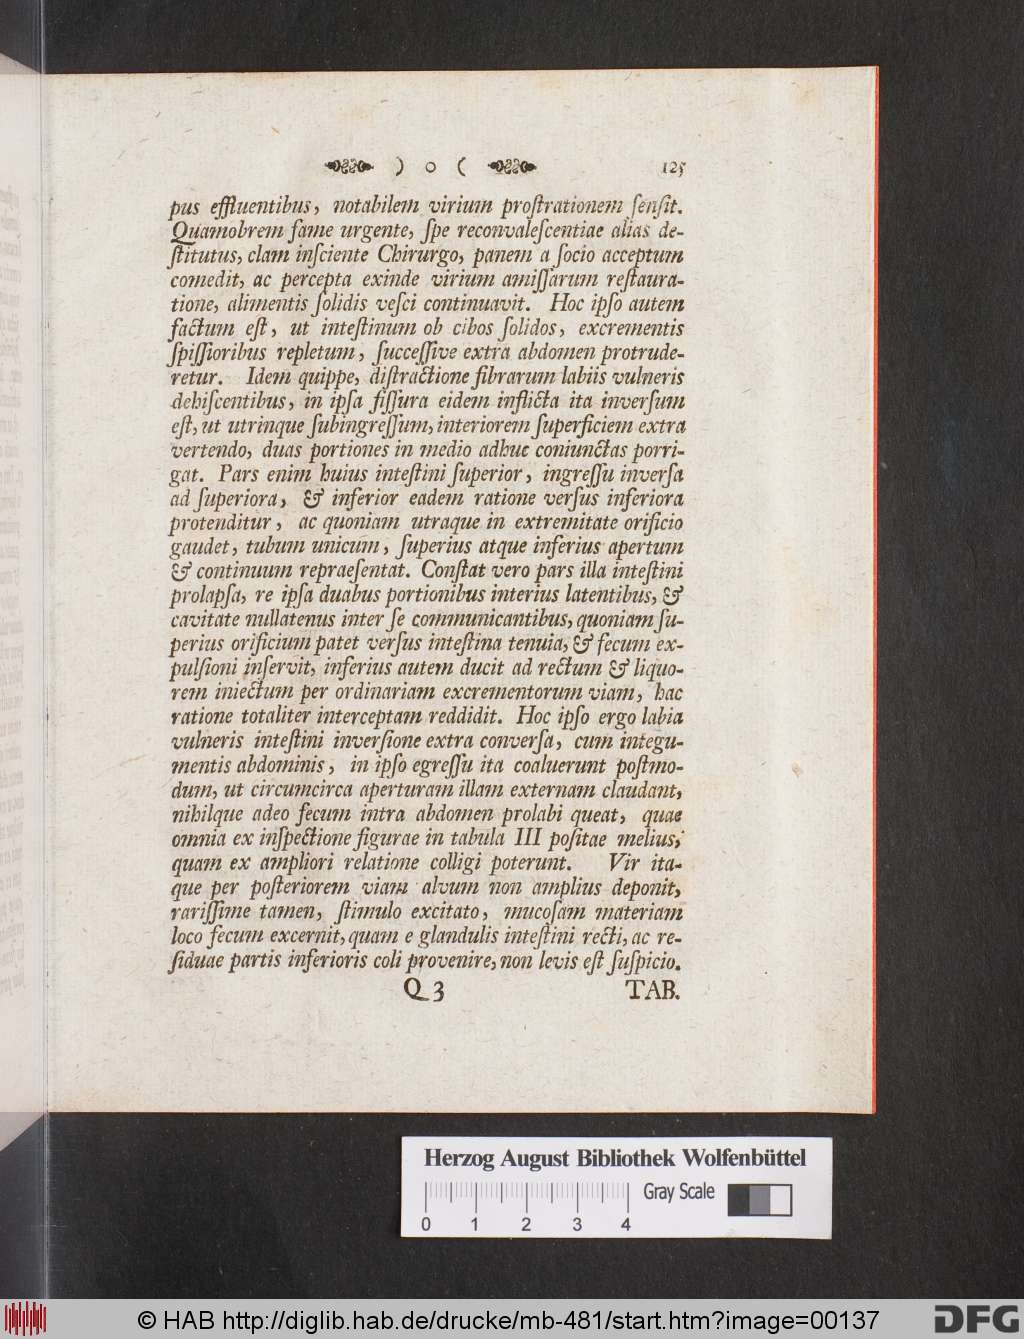 ) o ( 125
pus effluentibus, notabilem virium proſtrationem ſenſit.
Quamobrem fame urgente, ſpe reconvaleſcentiae alias de-
ſtitutus, clam inſciente Chirurgo, panem a ſocio acceptum
comedit, ac percepta exinde virium amiſſarum reſtaura-
tione, alimentis ſolidis veſci continuavit. Hoc ipſo autem
factum eſt, ut inteſtinum ob cibos ſolidos, excrementis
ſpiſſioribus repletum, ſucceſſive extra abdomen protrude-
retur. Idem quippe, diſtractione fibrarum labiis vulneris
dehiſcentibus, in ipſa fiſſura eidem inflicta ita inverſum
eſt, ut utrinque ſubingreſſum, interiorem ſuperficiem extra
vertendo, duas portiones in medio adhuc coniunctas porri-
gat. Pars enim huius inteſtini ſuperior, ingreſſu inverſa
ad ſuperiora, & inferior eadem ratione verſus inferiora
protenditur, ac quoniam utraque in extremitate orificio
gaudet, tubum unicum, ſuperius atque inferius apertum
& continuum repraeſentat. Conſtat vero pars illa inteſtini
prolapſa, re ipſa duabus portionibus interius latentibus, &
cavitate nullatenus inter ſe communicantibus, quoniam ſu-
perius orificium patet verſus inteſtina tenuia, & fecum ex-
pulſioni inſervit, inferius autem ducit ad rectum & liquo-
rem iniectum per ordinariam excrementorum viam, hac
ratione totaliter interceptam reddidit. Hoc ipſo ergo labia
vulneris inteſtini inverſione extra converſa, cum integu-
mentis abdominis, in ipſo egreſſu ita coaluerunt poſtmo-
dum, ut circumcirca aperturam illam externam claudant,
nihilque adeo fecum intra abdomen prolabi queat, quae
omnia ex inſpectione figurae in tabula III poſitae melius,
quam ex ampliori relatione colligi poterunt. Vir ita-
que per poſteriorem viam alvum non amplius deponit,
rariſſime tamen, ſtimulo excitato, mucoſam materiam
loco fecum excernit, quam e glandulis inteſtini recti, ac re-
ſiduae partis inferioris coli provenire, non levis eſt ſuſpicio.
Q 3 TAB.
Herzog August Bibliothek Wolfenbüttel
Gray Scale
0 1 2 3 4
© HAB http://diglib.hab.de/drucke/mb-481/start.htm?image=00137
DFG